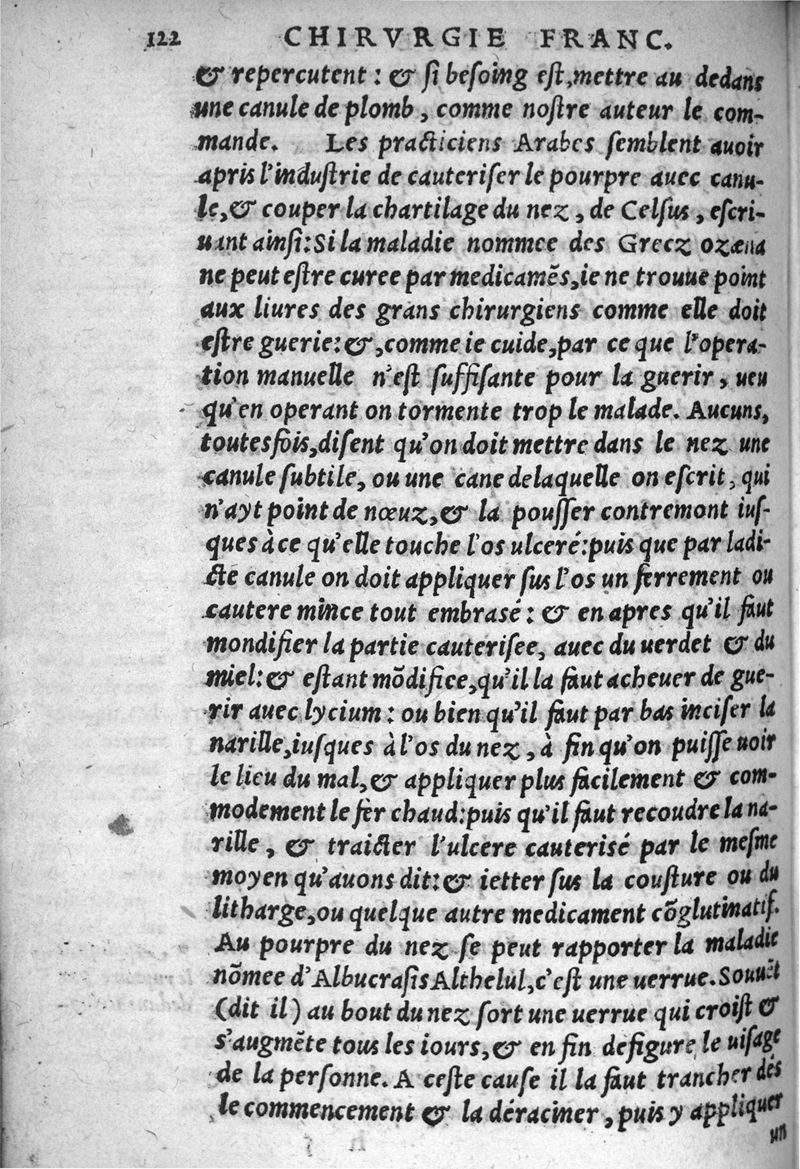 122 CHIRVRGIE FRANC.
& repercutent : & ſi beſoing eſt,mettre au dedans
une canule de plomb , comme noſtre auteur le com-
mande. Les practiciens Arabes ſemblent auoir
apris l'induſtrie de cauteriſer le pourpre auec canu-
le,& couper la chartilage du nez , de Celſus , eſcri-
uant ainſi:Si la maladie nommee des Grecz ozæna
ne peut eſtre curee par medicamẽs,ie ne trouue point
aux liures des grans chirurgiens comme elle doit
eſtre guerie:&,comme ie cuide,par ce que l'opera-
tion manuelle n'eſt ſuffiſante pour la guerir , ueu
qu'en operant on tormente trop le malade. Aucuns,
toutesfois,diſent qu'on doit mettre dans le nez une
canule ſubtile, ou une cane delaquelle on eſcrit, qui
n'ayt point de nœuz,& la pouſſer contremont iuſ-
ques à ce qu'elle touche l'os ulceré:puis que par ladi-
cte canule on doit appliquer ſus l'os un ferrement ou
cautere mince tout embraſé : & en apres qu'il faut
mondifier la partie cauteriſee, auec du uerdet & du
miel:& eſtant mõdifiee,qu'il la faut acheuer de gue-
rir auec lycium : ou bien qu'il faut par bas inciſer la
narille,iuſques à l'os du nez , à fin qu'on puiſſe uoir
le lieu du mal,& appliquer plus facilement & com-
modement le fer chaud:puis qu'il faut recoudre la na-
rille , & traicter l'ulcere cauteriſé par le meſme
moyen qu'auons dit:& ietter ſus la couſture ou du
litharge,ou quelque autre medicament cõglutinatif.
Au pourpre du nez ſe peut rapporter la maladie
nõmee d'Albucraſis Althelul,c'eſt une uerrue. Souuẽt
(dit il) au bout du nez ſort une uerrue qui croiſt &
s'augmẽte tous les iours,& en fin defigure le uiſage
de la perſonne. A ceſte cauſe il la faut trancher des
le commencement & la déraciner , puis y appliquer
un